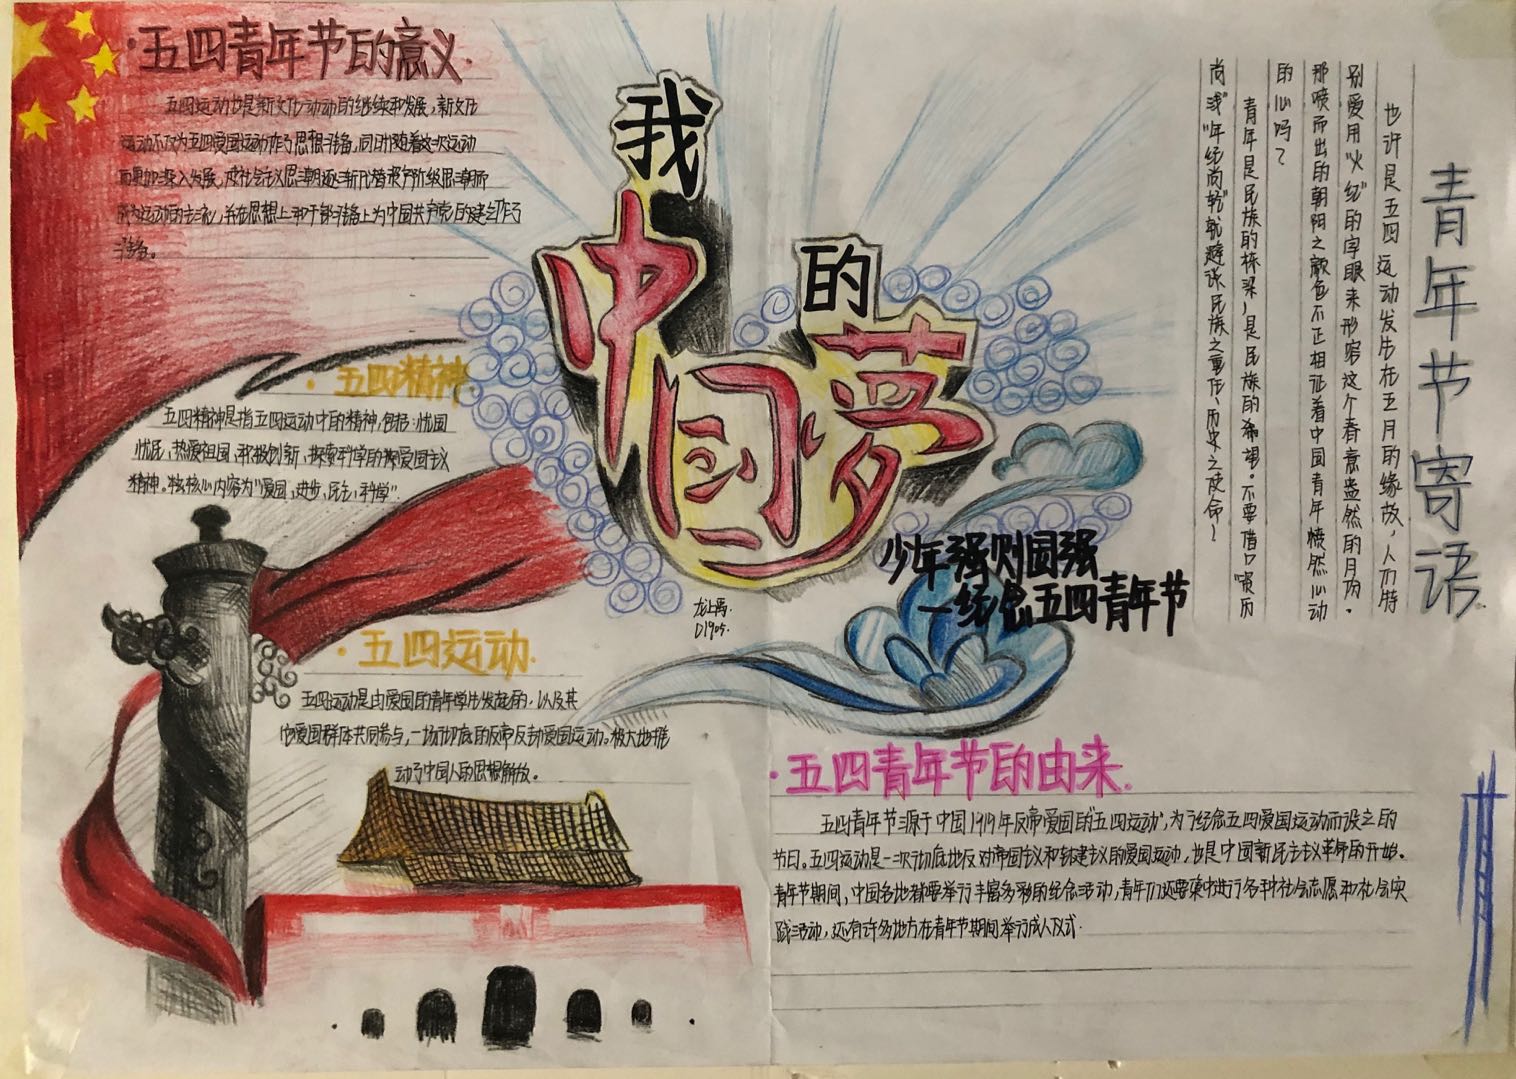 ·五四青年节的意义.
五四运动也是新文化动动的继续和发展,新文化
运动不仅为五四爱国运动作了思想准备,同时随着这次运动
而更加深入发展,使社会主义思潮逐渐代替资产阶级思潮而
成为运动的主流,并在思想上和干部准备上为中国共产党的建立作了
准备。
·五四精神.
五四精神是指五四运动中的精神,包括:忧国
忧民、热爱祖国、积极创新、探索科学的爱国主义
精神。核心内容为"爱国、进步、民主、科学".
·五四运动.
五四运动是由爱国的青年学生发起的,以及其
他爱国群体共同参与,一场彻底的反帝反封爱国运动。极大地推
动了中国人的思想解放。
我
的
中国梦
少年强则国强
—纪念五四青年节
龙上禹.
D1905.
青年节寄语.
也许是五四运动发生在五月的缘故,人们特
别爱用"火红"的字眼来形容这个春意盎然的月份.
那喷而出的朝阳之颜色不正相证着中国青年愤然心动
的心吗?
青年是民族的栋梁,是民族的希望。不要借口"资历
尚浅""年纪尚轻"就避谈民族之重任、历史之使命!
·五四青年节的由来.
五四青年节源于中国1919年反帝爱国的"五四运动",为了纪念五四爱国运动而设立的
节日。五四运动是一次彻底地反对帝国主义和封建主义的爱国运动,也是中国新民主主义革命的开始。
青年节期间,中国各地都要举行丰富多彩的纪念活动,青年们还要集中进行各种社会志愿和社会实
践活动,还有许多地方在青年节期间举行成人仪式.